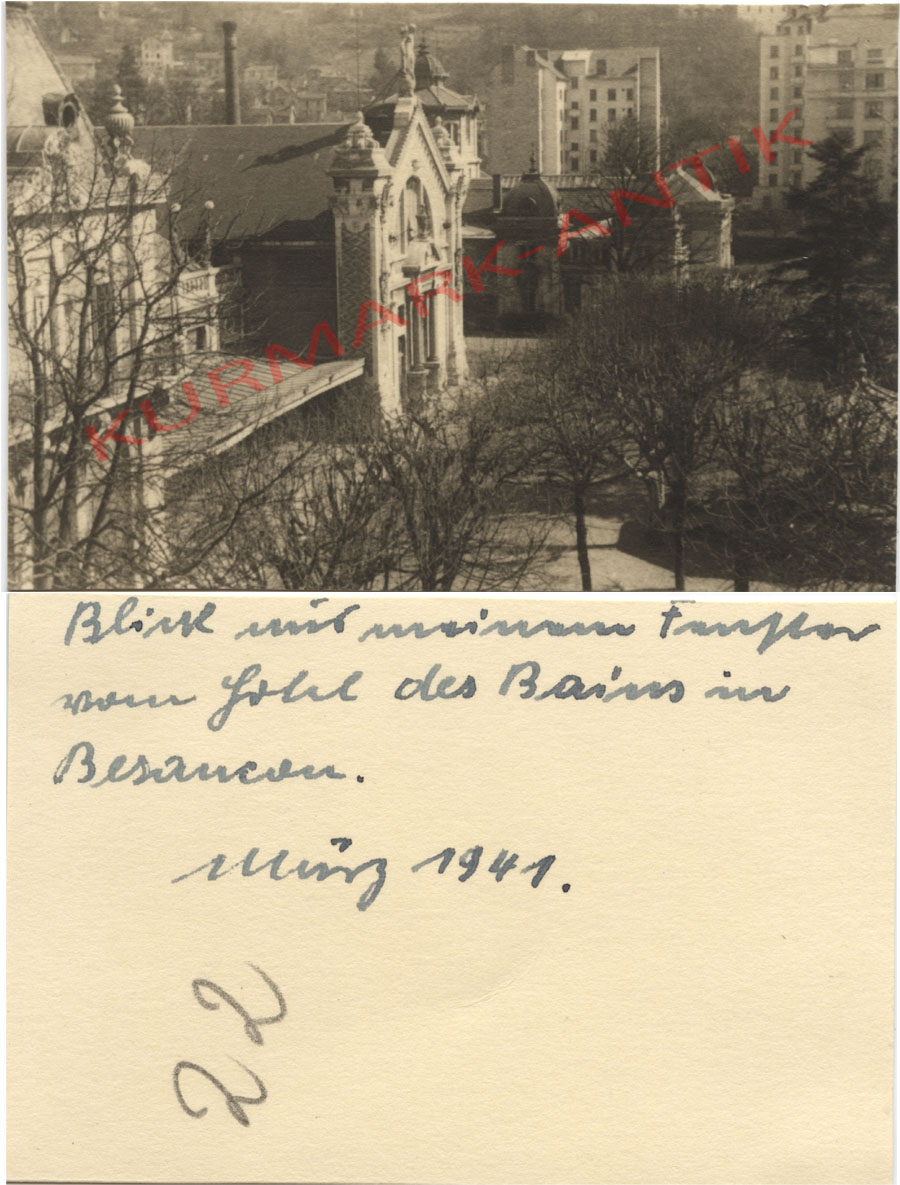 KURMARK-ANTIK
Blick aus meinem Fenster
vom Hotel des Bains in
Besancon.
März 1941.
22